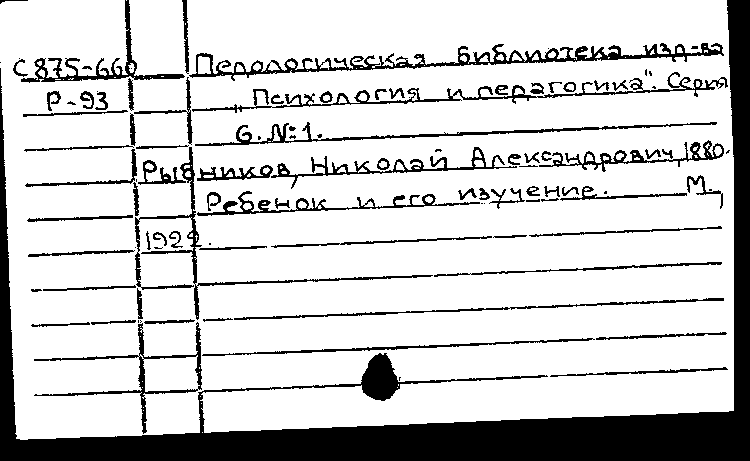 С875-660 Педологическая библиотека изд-ва
Р-93 „Психология и педагогика". Серия
6. №1.
Рыбников, Николай Александрович, 1880-
Ребенок и его изучение. М.,
1922.